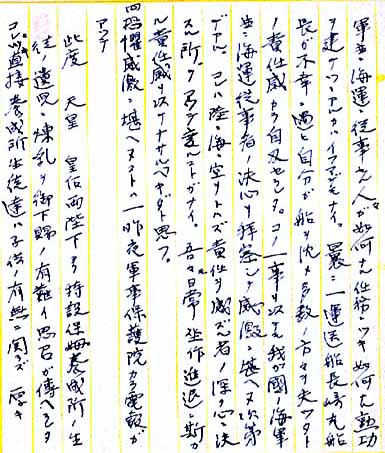 軍並ニ海運ニ従事スル人ガ如何ナル任務ニツキ如何ナル勲功
ヲ建テツヽアルカハイフマデモナイ。曩ニ一運送船長崎丸船
長ガ不幸ニ遇ヒ自分ガ船ヲ沈メ多数ノ方々ヲ失ツタト
ノ責任感カラ自刃セラレタ。コノ一事ヲ以テモ我ガ國ノ海軍
並ニ海運従事者ノ決心ヲ拝察シテ感激ニ堪ヘヌ次第
デアル。コレハ陸ト海ト空ヲトハズ責任ヲ感ズル者ノ深ク心ニ決
スル所デアツテ変ルコトガナイ。吾々日常坐作進退ニ斯カ
ル責任感ヲ以テナサルベキダト思フ
四、恐懼感激ニ堪ヘヌコトハ一昨夜軍事保護院カラ電報ガ
アツテ
此度 天皇 皇后両陛下ヨリ特設保姆養成所ノ生
徒ノ遺児ニ煉乳ヲ御下賜ノ有難イ思召ガ傳ヘラレタ
コレハ直接養成所生徒達ハ子供ノ有無ニ関ラズ厚キ